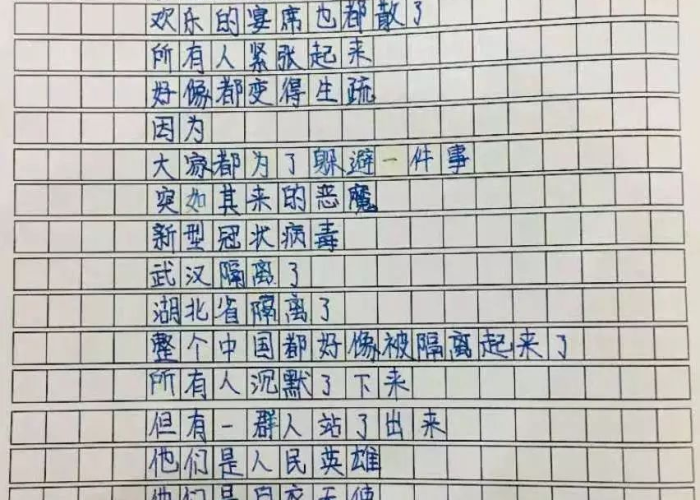 欢乐的宴席也都散了
所有人紧张起来
好像都变得生疏
因为
大家都为了躲避一件事
突如其来的恶魔
新型冠状病毒
武汉隔离了
湖北省隔离了
整个中国都好像被隔离起来了
所有人沉默了下来
但有一群人站了出来
他们是人民英雄
他们是白衣天使